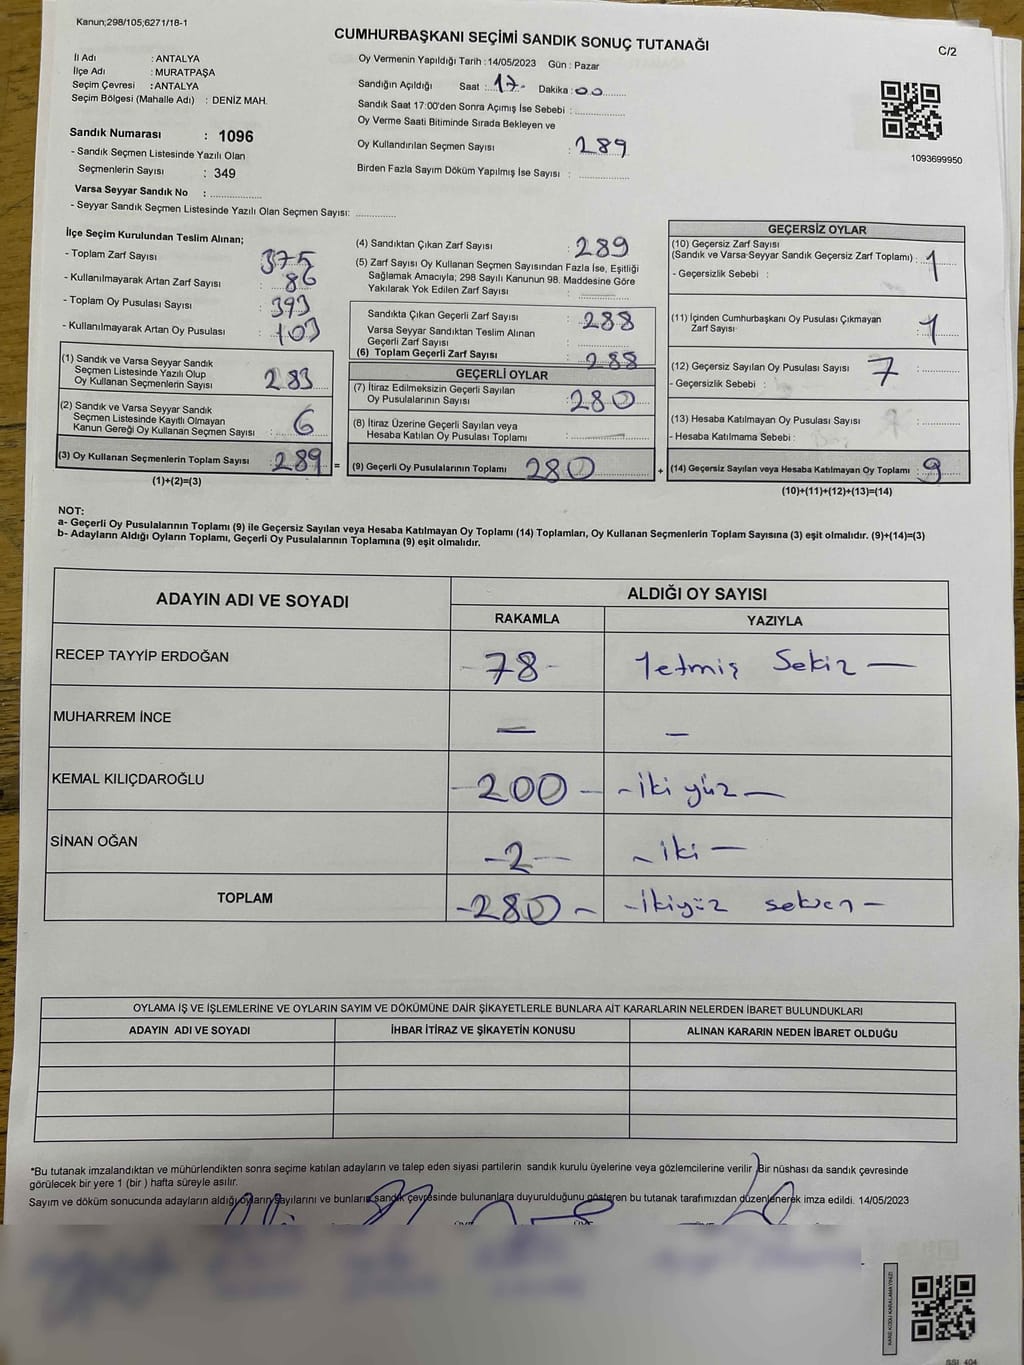 Kanun;298/105;6271/18-1
CUMHURBAŞKANI SEÇİMİ SANDIK SONUÇ TUTANAĞI
C/2
İl Adı : ANTALYA
İlçe Adı : MURATPAŞA
Seçim Çevresi : ANTALYA
Seçim Bölgesi (Mahalle Adı) : DENİZ MAH.
Sandık Numarası : 1096
- Sandık Seçmen Listesinde Yazılı Olan
Seçmenlerin Sayısı : 349
Varsa Seyyar Sandık No : ..............
- Seyyar Sandık Seçmen Listesinde Yazılı Olan Seçmen Sayısı: ............
Oy Vermenin Yapıldığı Tarih : 14/05/2023 Gün : Pazar
Sandığın Açıldığı Saat : 17 Dakika : 00
Sandık Saat 17:00'den Sonra Açımış İse Sebebi : ..............
Oy Verme Saati Bitiminde Sırada Bekleyen ve
Oy Kullandırılan Seçmen Sayısı : 289
Birden Fazla Sayım Döküm Yapılmış İse Sayısı : ..............
1093699950
İlçe Seçim Kurulundan Teslim Alınan;
- Toplam Zarf Sayısı : 375
- Kullanılmayarak Artan Zarf Sayısı : 86
- Toplam Oy Pusulası Sayısı : 393
- Kullanılmayarak Artan Oy Pusulası : 103
(1) Sandık ve Varsa Seyyar Sandık
Seçmen Listesinde Yazılı Olup
Oy Kullanan Seçmenlerin Sayısı : 283
(2) Sandık ve Varsa Seyyar Sandık
Seçmen Listesinde Kayıtlı Olmayan
Kanun Gereği Oy Kullanan Seçmen Sayısı : 6
(3) Oy Kullanan Seçmenlerin Toplam Sayısı : 289 =
(1)+(2)=(3)
(4) Sandıktan Çıkan Zarf Sayısı : 289
(5) Zarf Sayısı Oy Kullanan Seçmen Sayısından Fazla İse, Eşitliği
Sağlamak Amacıyla; 298 Sayılı Kanunun 98. Maddesine Göre
Yakılarak Yok Edilen Zarf Sayısı : ..............
Sandıkta Çıkan Geçerli Zarf Sayısı : 288
Varsa Seyyar Sandıktan Teslim Alınan
Geçerli Zarf Sayısı : ..............
(6) Toplam Geçerli Zarf Sayısı : 288
GEÇERLİ OYLAR
(7) İtiraz Edilmeksizin Geçerli Sayılan
Oy Pusulalarının Sayısı : 280
(8) İtiraz Üzerine Geçerli Sayılan veya
Hesaba Katılan Oy Pusulası Toplamı : ..............
(9) Geçerli Oy Pusulalarının Toplamı 280 +
GEÇERSİZ OYLAR
(10) Geçersiz Zarf Sayısı
(Sandık ve Varsa Seyyar Sandık Geçersiz Zarf Toplamı) : 1
- Geçersizlik Sebebi :
(11) İçinden Cumhurbaşkanı Oy Pusulası Çıkmayan
Zarf Sayısı : 1
(12) Geçersiz Sayılan Oy Pusulası Sayısı 7 : ............
- Geçersizlik Sebebi :
(13) Hesaba Katılmayan Oy Pusulası Sayısı : ............
- Hesaba Katılmama Sebebi :
(14) Geçersiz Sayılan veya Hesaba Katılmayan Oy Toplamı : 9
(10)+(11)+(12)+(13)=(14)
NOT:
a- Geçerli Oy Pusulalarının Toplamı (9) ile Geçersiz Sayılan veya Hesaba Katılmayan Oy Toplamı (14) Toplamları, Oy Kullanan Seçmenlerin Toplam Sayısına (3) eşit olmalıdır. (9)+(14)=(3)
b- Adayların Aldığı Oyların Toplamı, Geçerli Oy Pusulalarının Toplamına (9) eşit olmalıdır.
ADAYIN ADI VE SOYADI
ALDIĞI OY SAYISI
RAKAMLA YAZIYLA
RECEP TAYYİP ERDOĞAN - 78 - Yetmiş Sekiz —
MUHARREM İNCE — —
KEMAL KILIÇDAROĞLU - 200 - - iki yüz —
SİNAN OĞAN - 2 - - iki —
TOPLAM - 280 - - ikiyüz seksen -
OYLAMA İŞ VE İŞLEMLERİNE VE OYLARIN SAYIM VE DÖKÜMÜNE DAİR ŞİKAYETLERLE BUNLARA AİT KARARLARIN NELERDEN İBARET BULUNDUKLARI
ADAYIN ADI VE SOYADI İHBAR İTİRAZ VE ŞİKAYETİN KONUSU ALINAN KARARIN NEDEN İBARET OLDUĞU
*Bu tutanak imzalandıktan ve mühürlendikten sonra seçime katılan adayların ve talep eden siyasi partilerin sandık kurulu üyelerine veya gözlemcilerine verilir. Bir nüshası da sandık çevresinde
görülecek bir yere 1 (bir ) hafta süreyle asılır.
Sayım ve döküm sonucunda adayların aldığı oyların sayılarını ve bunların sandık çevresinde bulunanlara duyurulduğunu gösteren bu tutanak tarafımızdan düzenlenerek imza edildi. 14/05/2023
KARE KODU KARALAMAYINIZ!
SSI_404